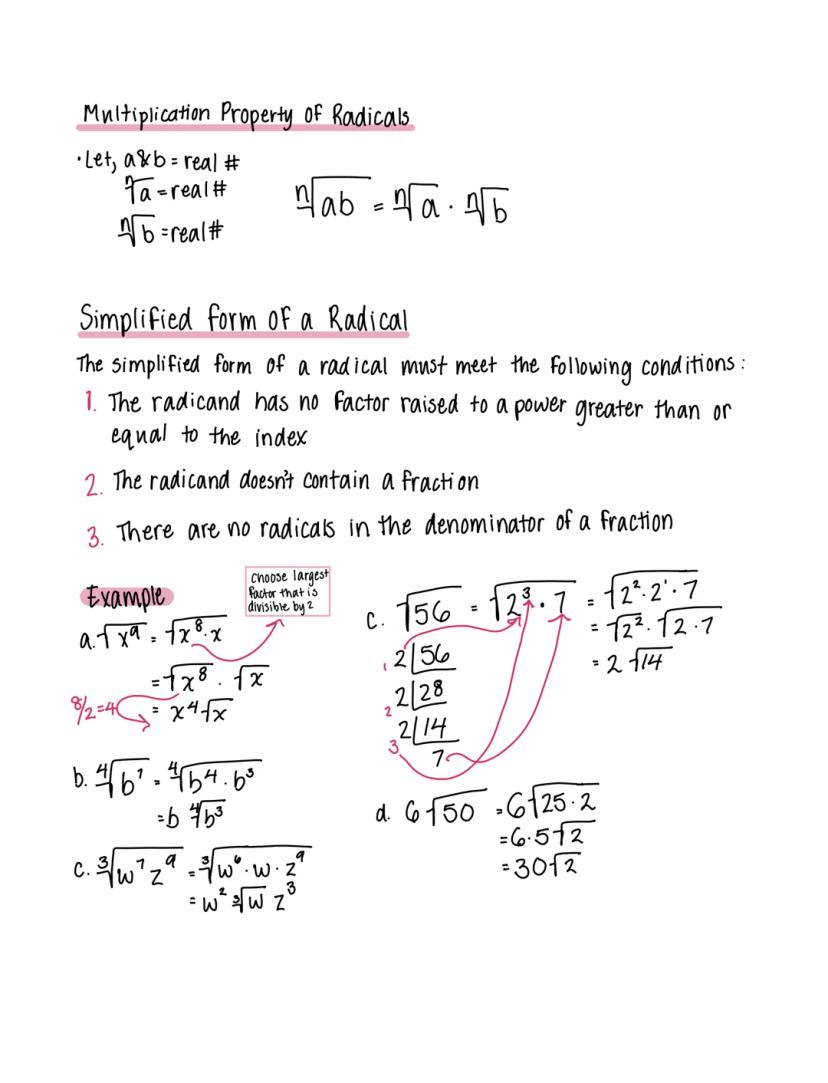 Multiplication Property of Radicals
·Let, a&b = real #
ⁿ√a = real #
ⁿ√b = real #
ⁿ√ab = ⁿ√a · ⁿ√b
Simplified form of a Radical
The simplified form of a radical must meet the following conditions:
1. The radicand has no factor raised to a power greater than or
equal to the index
2. The radicand doesn't contain a fraction
3. There are no radicals in the denominator of a fraction
Example
Choose largest
factor that is
divisible by 2
a. √x⁹ = √x⁸·x
= √x⁸ · √x
8/2=4
= x⁴√x
b. ⁴√b⁷ = ⁴√b⁴·b³
= b ⁴√b³
c. ³√w⁷z⁹ = ³√w⁶·w·z⁹
= w² ³√w z³
c. √56 = √2³·7 = √2²·2¹·7
= √2² · √2·7
= 2√14
1 2|56
2 2|28
3 2|14
7
d. 6√50 = 6√25·2
= 6·5√2
= 30√2